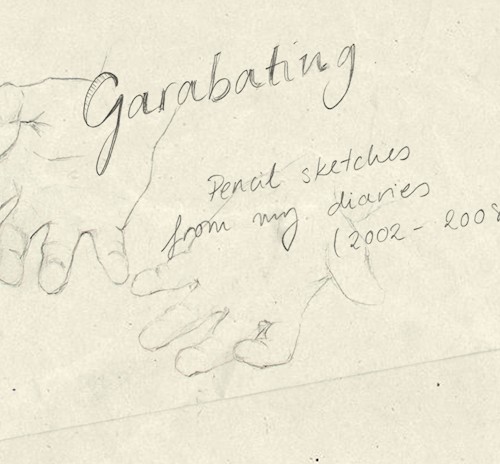 Garabating
Pencil sketches
from my diaries
(2002 - 2008